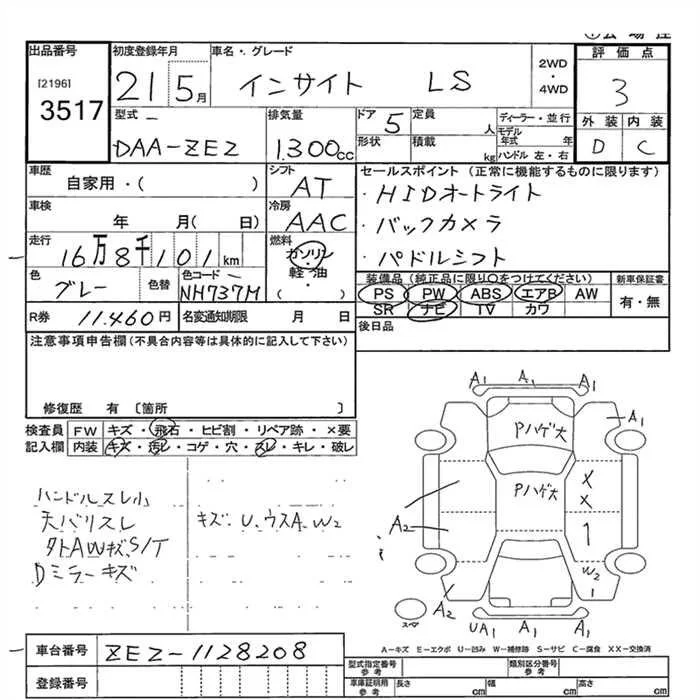 出品番号
[2196]
3517
初度登録年月
21 5月
車名・グレード
インサイト LS
2WD
・
4WD
評価点
3
外装 内装
D C
型式
DAA-ZE2
排気量
1.300cc
ドア
5
定員
人
形状
積載
kg
ディーラー・並行
モデル年式
年
ハンドル 左・右
車歴
自家用・( )
シフト
AT
車検
年 月( 日)
冷房
AAC
走行
16万8千101km
燃料
ガソリン
・
軽油
( )
色
グレー
色替
色コード
NH737M
R券
11.460円
名変通知期限 月 日
セールスポイント (正常に機能するものに限ります)
・HIDオートライト
・バックカメラ
・パドルシフト
装備品 (純正品に限り〇をつけてください)
PS PW ABS エアB AW
SR ナビ TV カワ
新車保証書
有・無
後日品
注意事項申告欄 (不具合内容等は具体的に記入して下さい)
修復歴 有 〔箇所 〕
検査員記入欄
FW キズ・飛石・ヒビ割・リペア跡・×要
内装 キズ・汚レ・コゲ・穴・スレ・キレ・破レ
ハンドルスレ小
天バリスレ
タトAWキズ、S/T
Dミラーキズ
キズ.U.ウスA.W2
A1 A1 A1
A1
Pハゲ大
Pハゲ大
X
X
A2
1
W2
1
A2
スペア
UA1 A1 A1
A-キズ E-エクボ U-凹み W-補修跡 S-サビ C-腐食 XX-交換済
車台番号
ZE2-1128208
登録番号
型式指定番号
参考
類別区分番号
参考
車庫証明用
参考
長さ cm
幅 cm
高さ cm